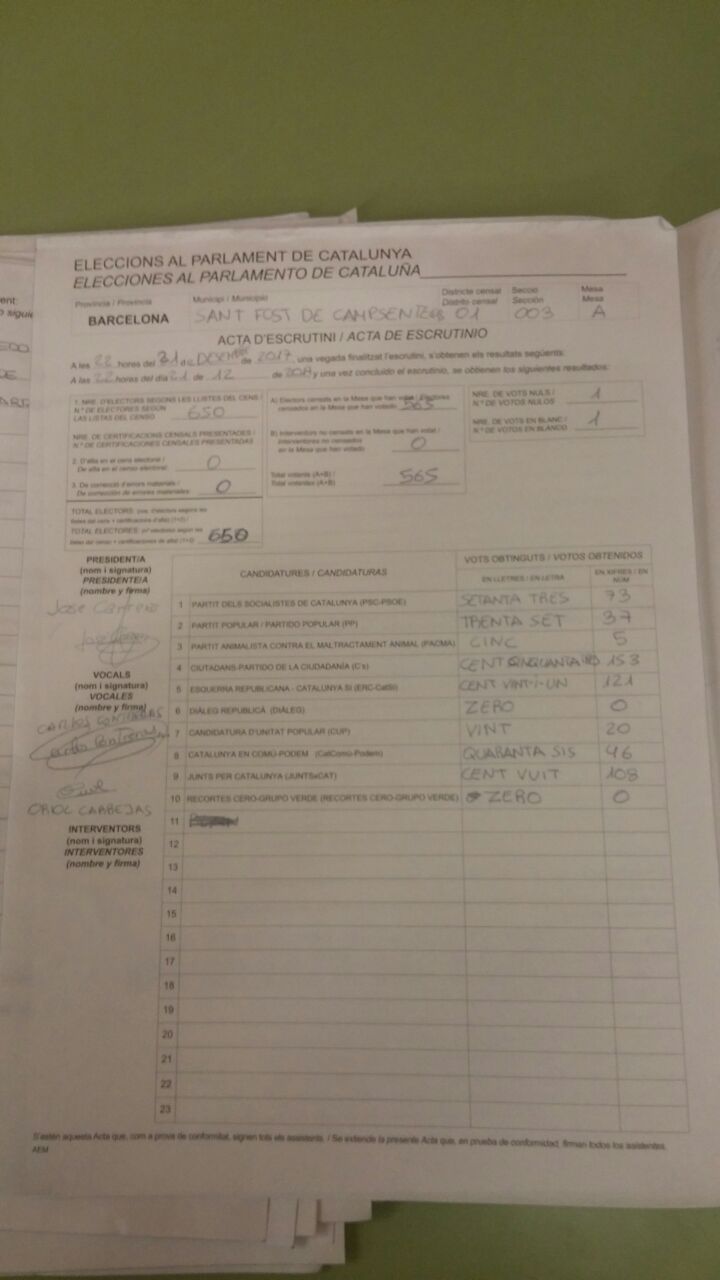 ELECCIONS AL PARLAMENT DE CATALUNYA
ELECCIONES AL PARLAMENTO DE CATALUÑA
Província / Provincia
Municipi / Municipio
Districte censal
Distrito censal
Secció
Sección
Mesa
Mesa
BARCELONA
SANT FOST DE
01
003
A
ACTA D'ESCRUTINI / ACTA DE ESCRUTINIO
A les 22 hores del 21 de de 2017, una vegada finalitzat l'escrutini, s'obtenen els resultats següents:
A las 22 horas del día 21 de 12 de y una vez concluido el escrutinio, se obtienen los siguientes resultados:
1. NRE. D'ELECTORS SEGONS LES LLISTES DEL CENS /
N.º DE ELECTORES SEGÚN
LAS LISTAS DEL CENSO
650
NRE. DE CERTIFICACIONS CENSALS PRESENTADES /
N.º DE CERTIFICACIONES CENSALES PRESENTADAS
2. D'alta en el cens electoral /
De alta en el censo electoral:
0
3. De correcció d'errors materials /
De corrección de errores materiales:
0
TOTAL ELECTORS:
TOTAL ELECTORES:
650
A) Electors censats en la Mesa que han votat / Electores
censados en la Mesa que han votado
565
B) Interventors no censats en la Mesa que han votat /
Interventores no censados
en la Mesa que han votado
0
Total votants (A+B) /
Total votantes (A+B)
565
NRE. DE VOTS NULS /
N.º DE VOTOS NULOS
1
NRE. DE VOTS EN BLANC /
N.º DE VOTOS EN BLANCO
1
PRESIDENT/A
(nom i signatura)
PRESIDENTE/A
(nombre y firma)
VOCALS
(nom i signatura)
VOCALES
(nombre y firma)
ORIOL CARBEJAS
INTERVENTORS
(nom i signatura)
INTERVENTORES
(nombre y firma)
CANDIDATURES / CANDIDATURAS
VOTS OBTINGUTS / VOTOS OBTENIDOS
EN LLETRES / EN LETRA
EN XIFRES / EN NÚM
1 PARTIT DELS SOCIALISTES DE CATALUNYA (PSC-PSOE) SETANTA TRES 73
2 PARTIT POPULAR / PARTIDO POPULAR (PP) TRENTA SET 37
3 PARTIT ANIMALISTA CONTRA EL MALTRACTAMENT ANIMAL (PACMA) CINC 5
4 CIUTADANS-PARTIDO DE LA CIUDADANÍA (C's) CENT 153
5 ESQUERRA REPUBLICANA - CATALUNYA SÍ (ERC-CatSí) CENT VINT-I-UN 121
6 DIÀLEG REPUBLICÀ (DIÀLEG) ZERO 0
7 CANDIDATURA D'UNITAT POPULAR (CUP) VINT 20
8 CATALUNYA EN COMÚ-PODEM (CatComú-Podem) QUARANTA SIS 46
9 JUNTS PER CATALUNYA (JUNTSxCAT) CENT VUIT 108
10 RECORTES CERO-GRUPO VERDE (RECORTES CERO-GRUPO VERDE) ZERO 0
11
12
13
14
15
16
17
18
19
20
21
22
23
S'estén aquesta Acta que, com a prova de conformitat, signen tots els assistents. / Se extiende la presente Acta que, en prueba de conformidad, firman todos los asistentes.
AEM